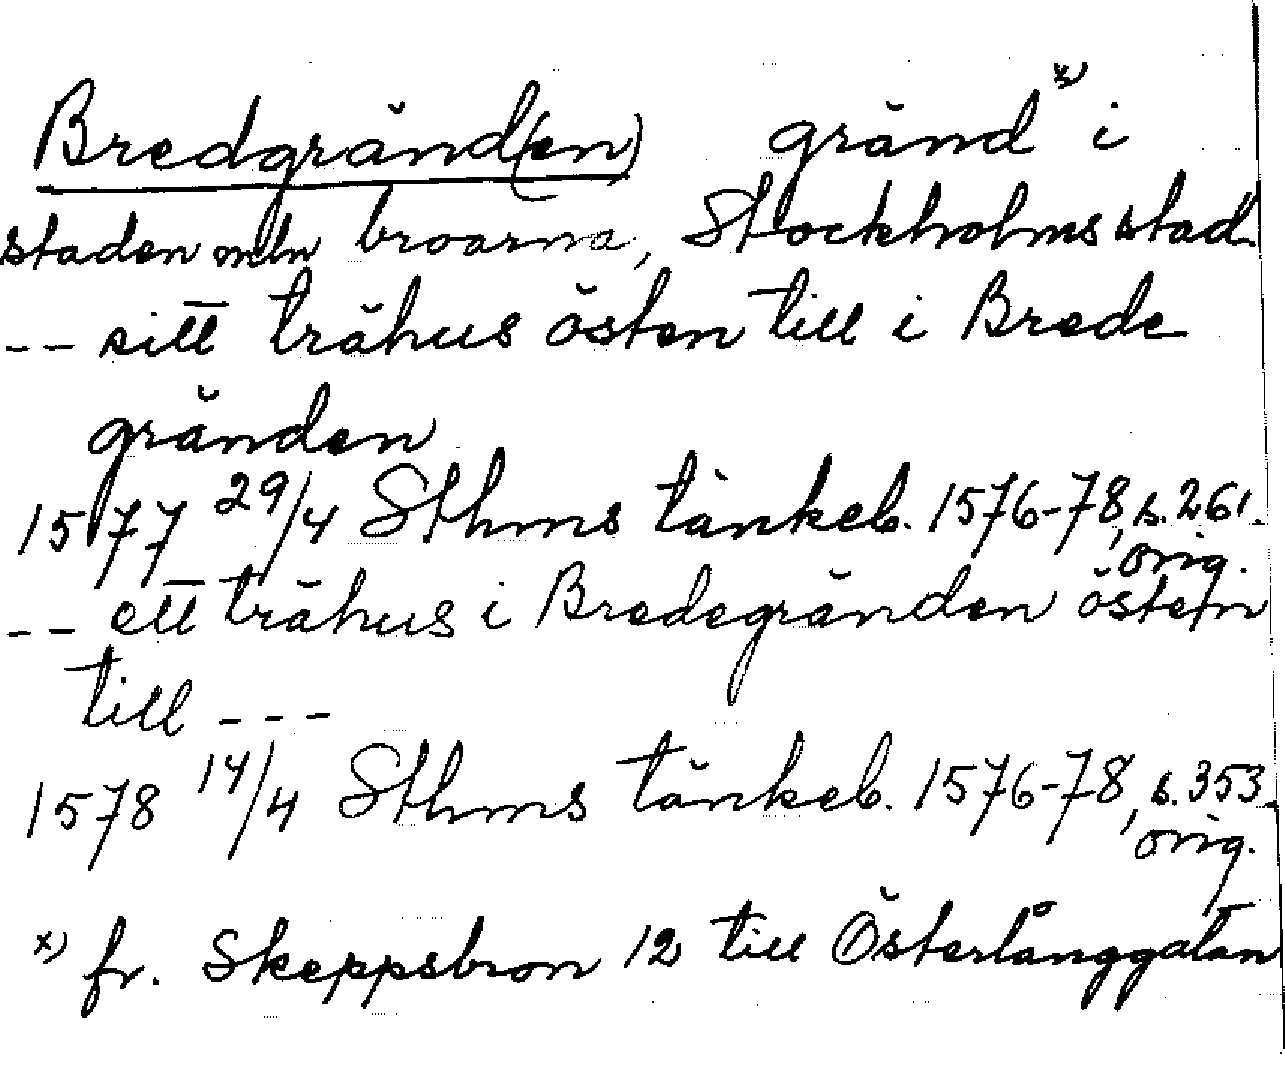 Bredgränd(en) gränd x) i
staden mln broarna, Stockholms stad.
-- sitt trähus östen till i Brede
gränden
1577 29/4 Sthms tänkeb. 1576-78, s. 261.
orig.
-- ett trähus i Bredegränden östen
till ---
1578 14/4 Sthms tänkeb. 1576-78, s. 353.
orig.
x) fr. Skeppsbron 12 till Österlånggatan